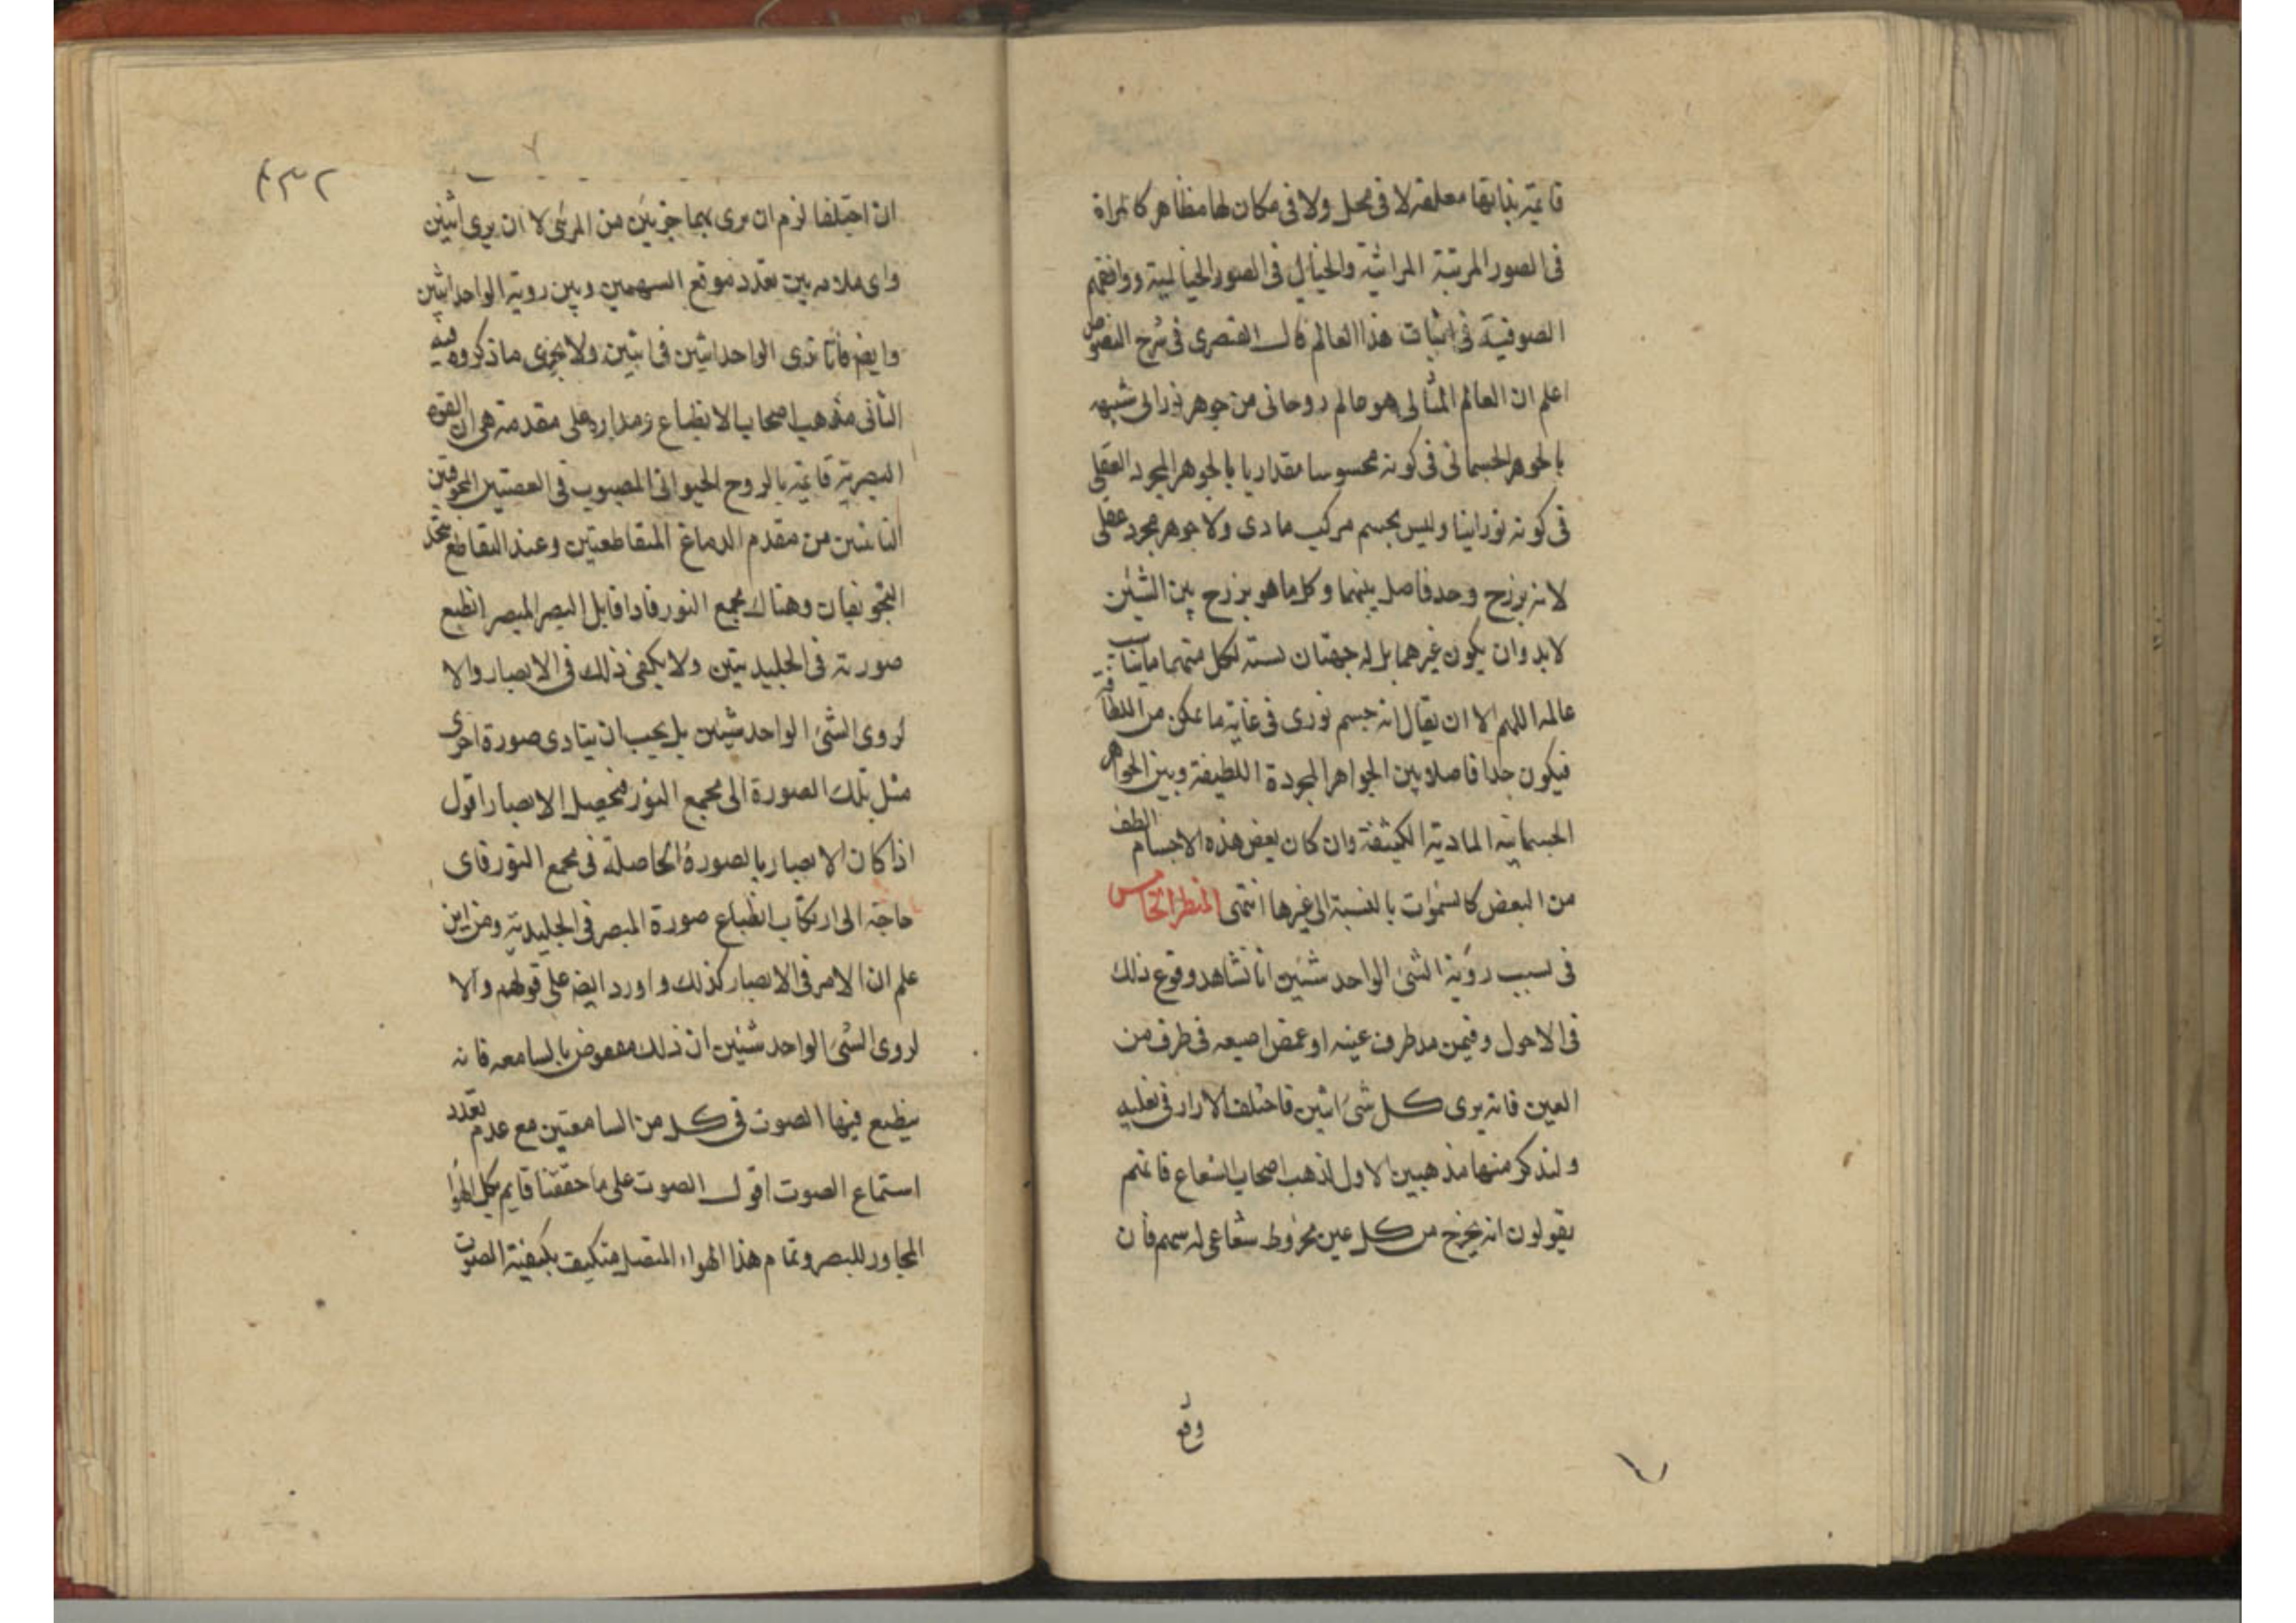 قائمة بذاتها معلقة لا فى محل ولا فى مكان لها مظاهر كالمراة
فى الصور المرتبة المراتية والخيال فى الصور الخيالية ووافقهم
الصوفية فى اثبات هذا العالم قال القصرى فى شرح الفصوص
اعلم ان العالم المثالى هو عالم روحانى من جوهر نورانى شبيه
بالجوهر الجسمانى فى كونه محسوسا مقداريا بالجوهر المجرد العقلى
فى كونه نورانيا وليس بجسم مركب مادى ولا جوهر مجرد عقلى
لانه برزخ وحد فاصل بينهما وكل ما هو برزخ بين الشيئين
لابد وان يكون غيرهما بل له جهتان لسته لكل منهما ما يناسب
عالمه اللهم الا ان يقال انه جسم نورى فى غاية ما يمكن من اللطافة
فيكون حدا فاصلا بين الجواهر المجردة اللطيفة وبين الجواهر
الجسمانية المادية الكثيفة وان كان بعض هذه الاجسام الطف
من البعض كالسموات بالنسبة الى غيرها انتهى المنظر الخامس
فى سبب رؤية الشئ الواحد شيئين انا نشاهد وقوع ذلك
فى الاحول وفيمن مد طرف عينه او غمض اصبعه فى طرف من
العين فانه يرى كل شئ اثنين فاختلف الاراء فى تعليله
ولنذكر منها مذهبين الاول لذهب اصحاب الشعاع فانهم
يقولون انه يخرج من كل عين مخروط شعاعى له سهم فان
وقع
٤٣٢
ان اختلفا لزم ان يرى بهما جزئين من المرئى لا ان يرى اثنين
واى ملازمة بين تعدد موقع السهمين وبين روية الواحد اثنين
وايضا فانا نرى الواحد اثنين فى اثنين ولا يجرى ما ذكروه فيه
الثانى مذهب اصحاب الانطباع ومداره على مقدمة هى ان القوة
البصرية قائمة بالروح الحيوانى المصبوب فى العصبتين المجوفتين
النابتتين من مقدم الدماغ المتقاطعتين وعند التقاطع يتحد
التجويفان وهناك مجمع النور فاذا قابل البصر المبصر انطبع
صورته فى الجليديتين ولا يكفى ذلك فى الابصار والا
لروى الشئ الواحد شيئين بل يجب ان يتادى صورة اخرى
مثل تلك الصورة الى مجمع النور فحصل الابصار اقول
اذا كان الابصار بالصورة الحاصلة فى مجمع النور فاى
حاجة الى ارتكاب انطباع صورة المبصر فى الجليدية ومن اين
علم ان الامر فى الابصار كذلك واورد ايضا على قولهم والا
لروى الشئ الواحد شيئين ان ذلك منقوض بالسامعه فانه
ينطبع فيها الصوت فى كل من السامعتين مع عدم تعدد
استماع الصوت اقول الصوت على ما حققنا قايم بكل الهوا
المجاور للبصر وتمام هذا الهواء المتصل متكيف بكيفية الصوت